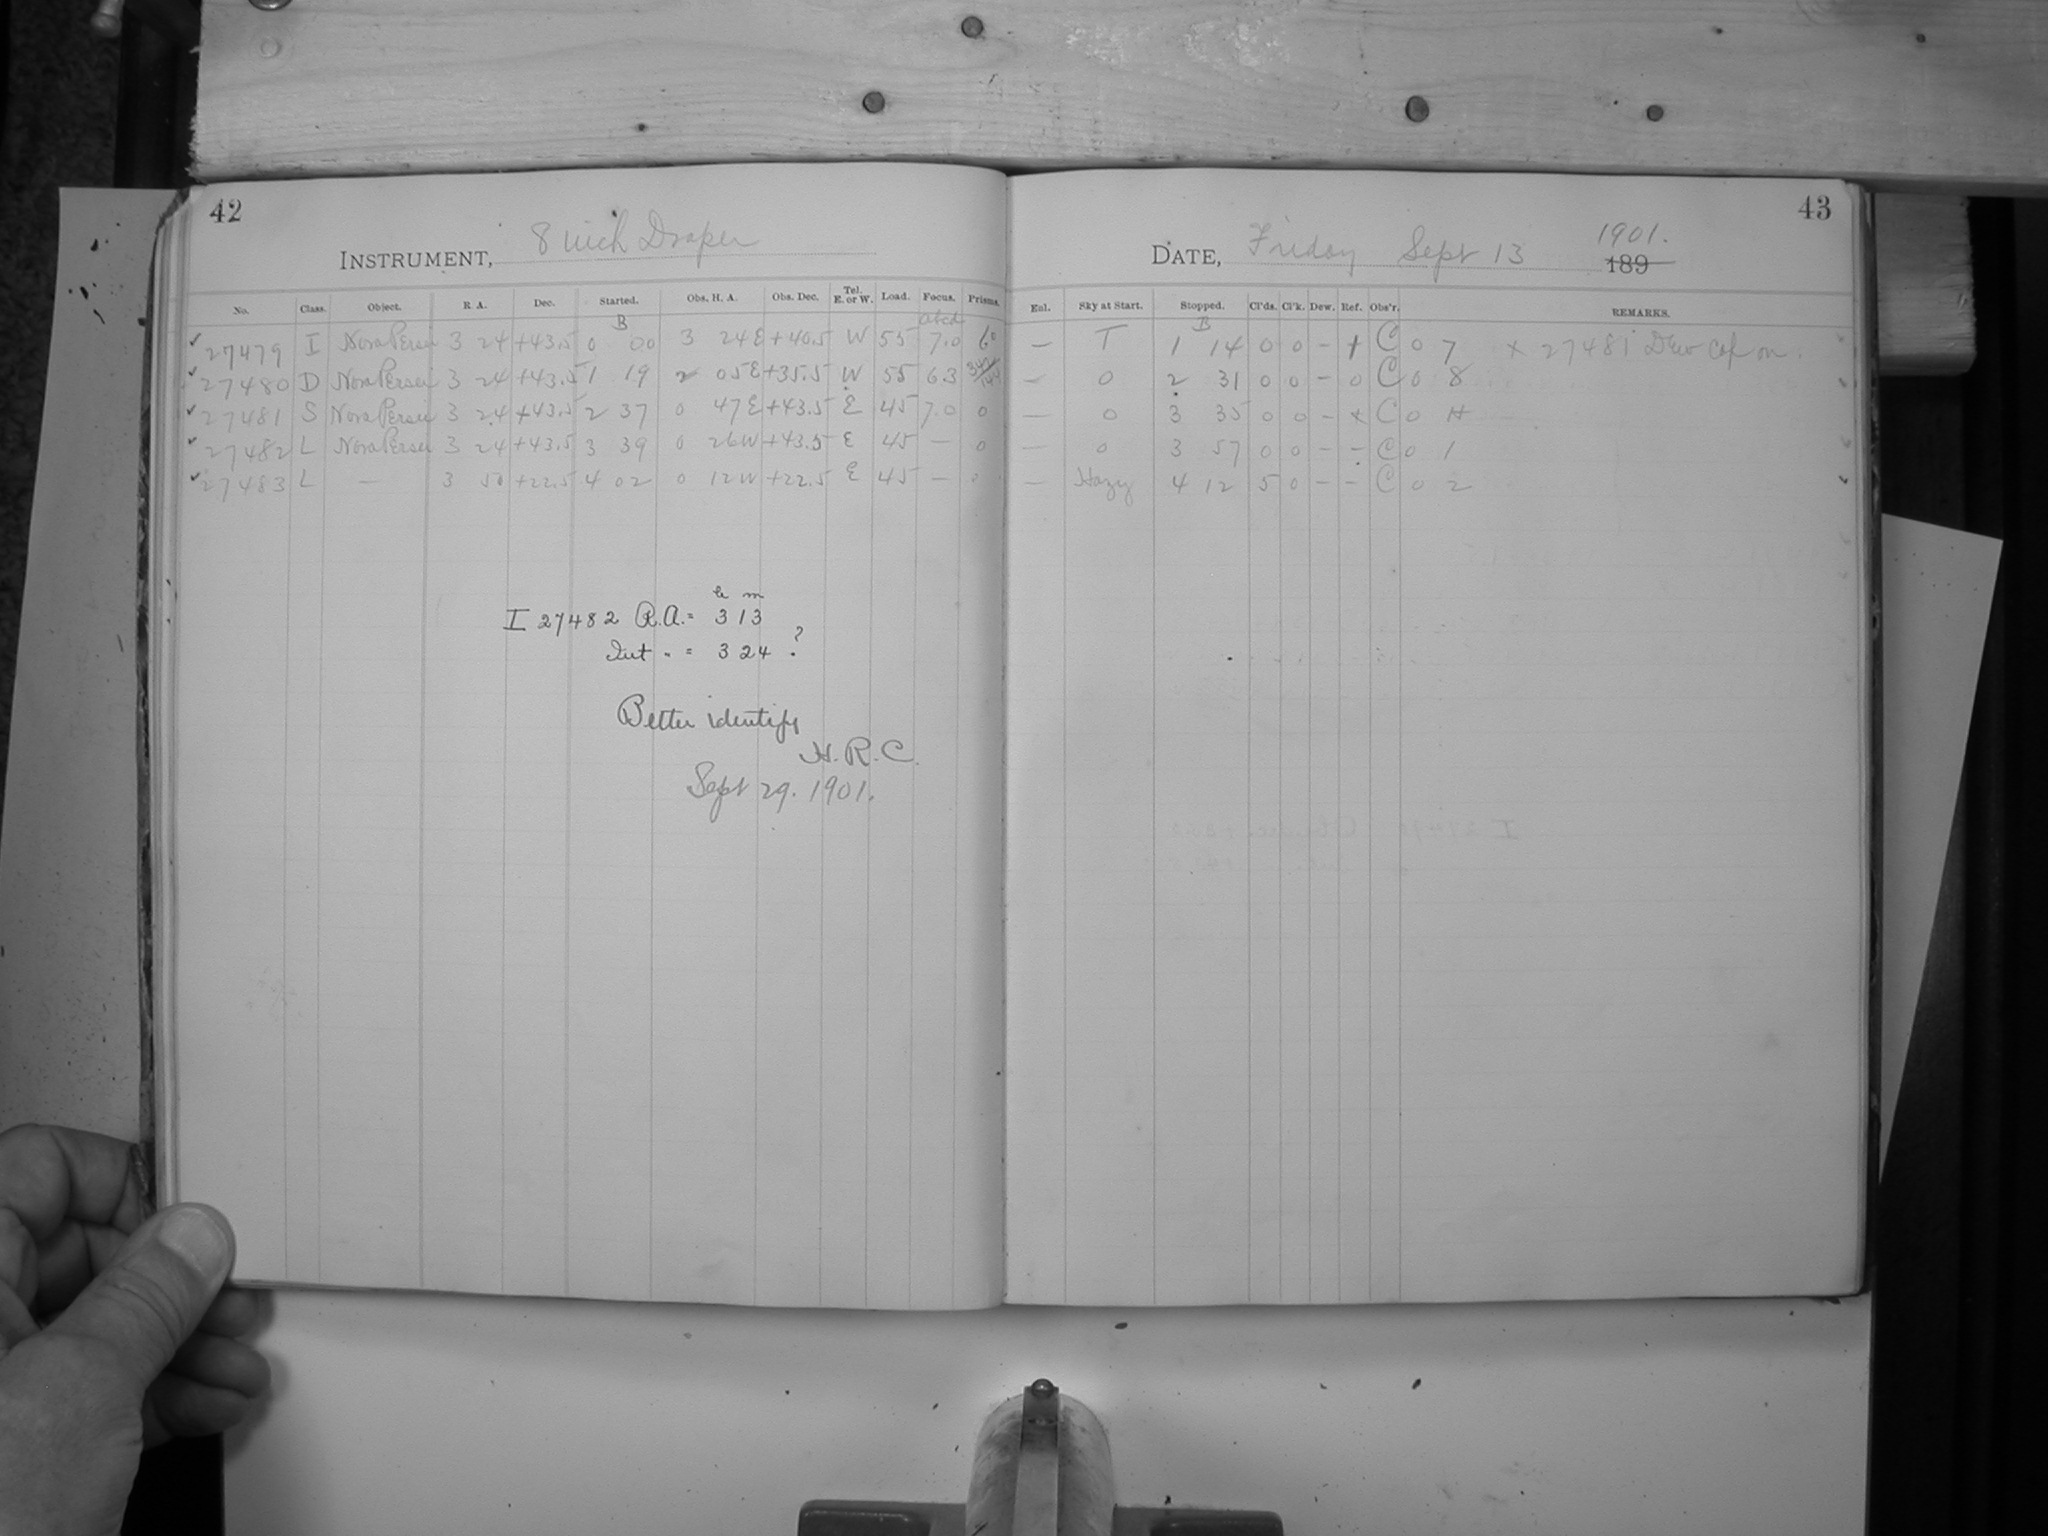 42
INSTRUMENT, 8 inch Draper
No. Class. Object. R. A. Dec. Started. Obs. H. A. Obs. Dec. Tel. E. or W. Load. Focus. Prisms.
B abcd
27479 I Nova Persei 3 24 +43.5 0 00 3 24 E +40.5 W 55 7.0
27480 D Nova Persei 3 24 +43.5 1 19 2 05 E +35.5 W 55 6.3
27481 S Nova Persei 3 24 +43.5 2 37 0 47 E +43.5 E 45 7.0 0
27482 L Nova Persei 3 24 +43.5 3 39 0 26 W +43.5 E 45 — 0
27483 L — 3 50 +22.5 4 02 0 12 W +22.5 E 45 —
h m
I 27482 R.A. = 3 13
Int " = 3 24 ?
Better identify
H. R. C.
Sept 29. 1901.
43
1901.
DATE, Friday Sept 13 189
Enl. Sky at Start. Stopped. Cl'ds. Cl'k. Dew. Ref. Obs'r. REMARKS.
B
— T 1 14 0 0 – + C 0 7 x 27481 Dew Cap on.
— 0 2 31 0 0 – 0 C 0 8
— 0 3 35 0 0 – x C 0 H
— 0 3 57 0 0 – – C 0 1
— Hazy 4 12 5 0 – – C 0 2